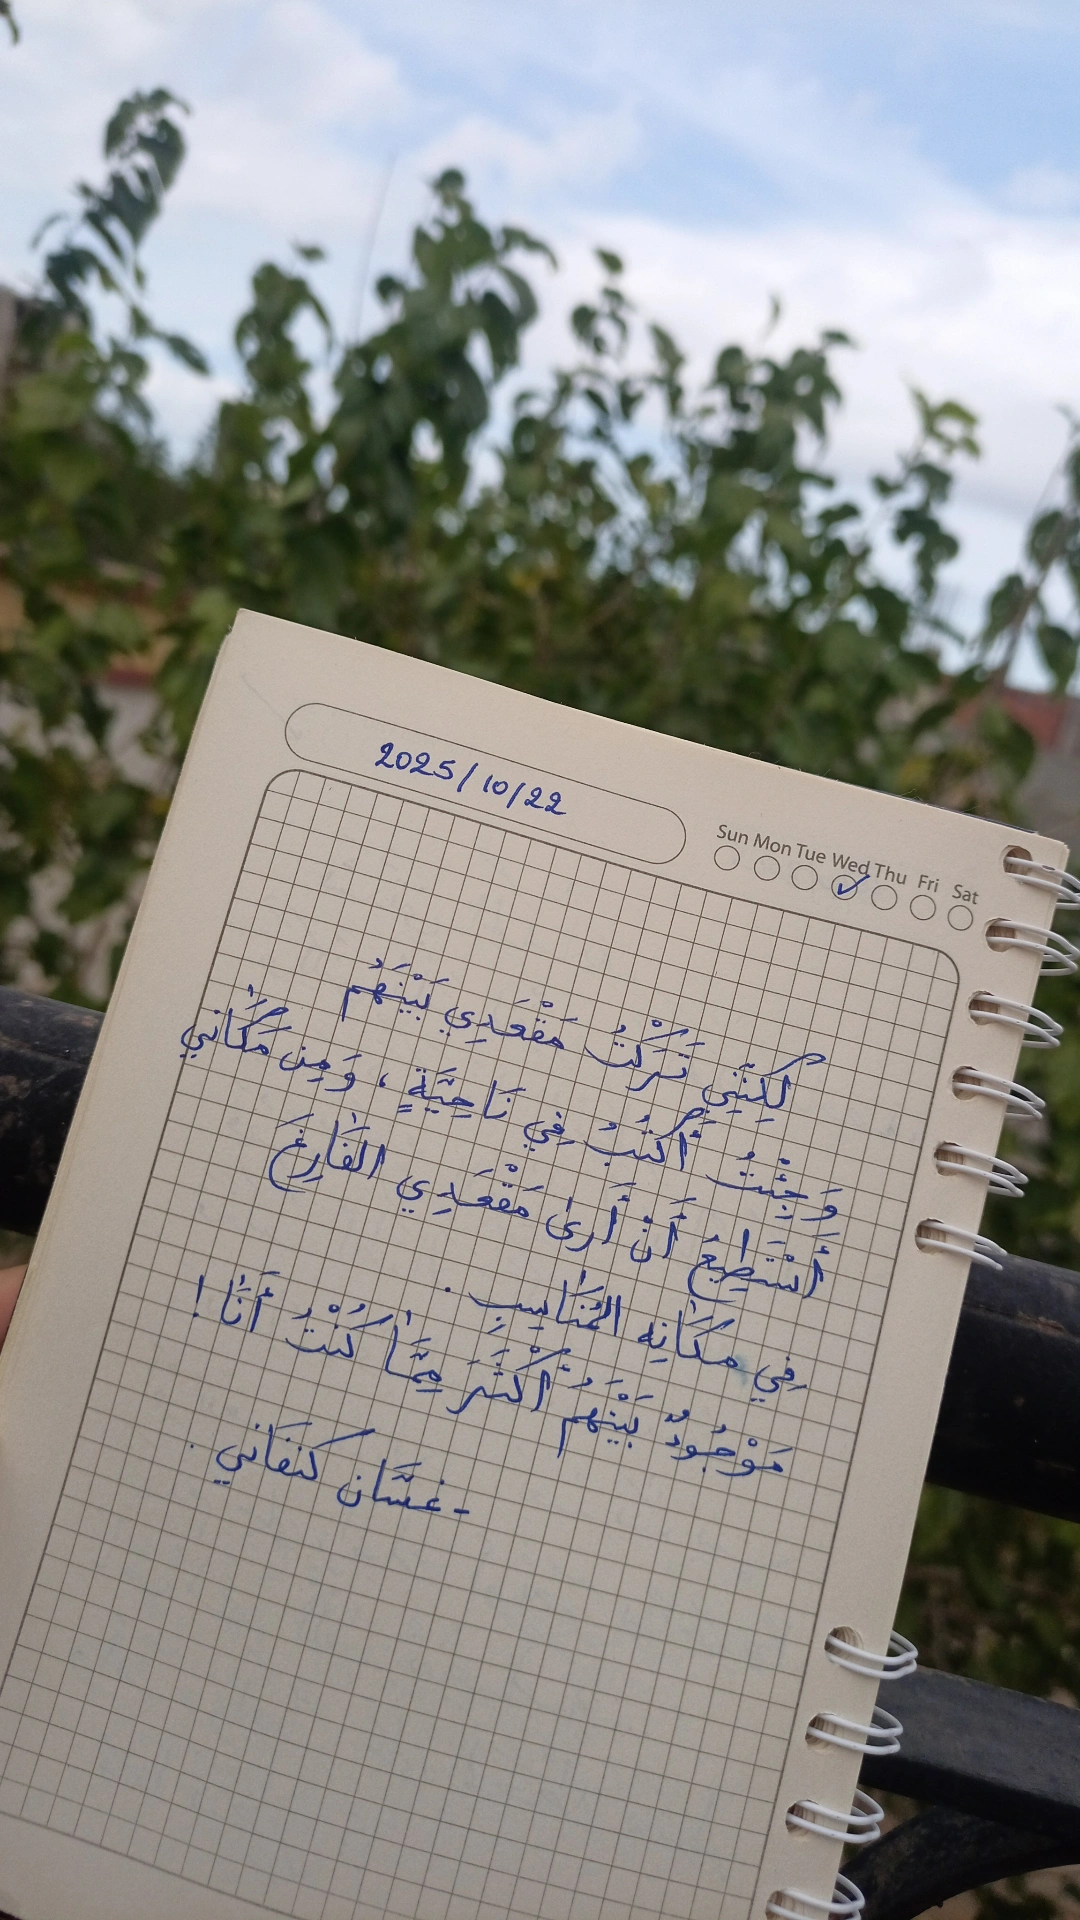 2025/10/22
Sun Mon Tue Wed Thu Fri Sat
لَكِنَّنِي تَرَكْتُ مَقْعَدِي بَيْنَهُم
وَجِئْتُ أَكْتُبُ فِي نَاحِيَّةٍ، وَمِن مَكَانِي
أَسْتَطِيعُ أَنْ أَرى مَقْعَدِي الفَارِغَ
فِي مكَانِه المُنَاسِبِ.
مَوْجُودٌ بَيْنَهُمُ أَكْثَرَ مِمَّا كُنْتُ أَنَا!
- غسَّان كنفَاني.